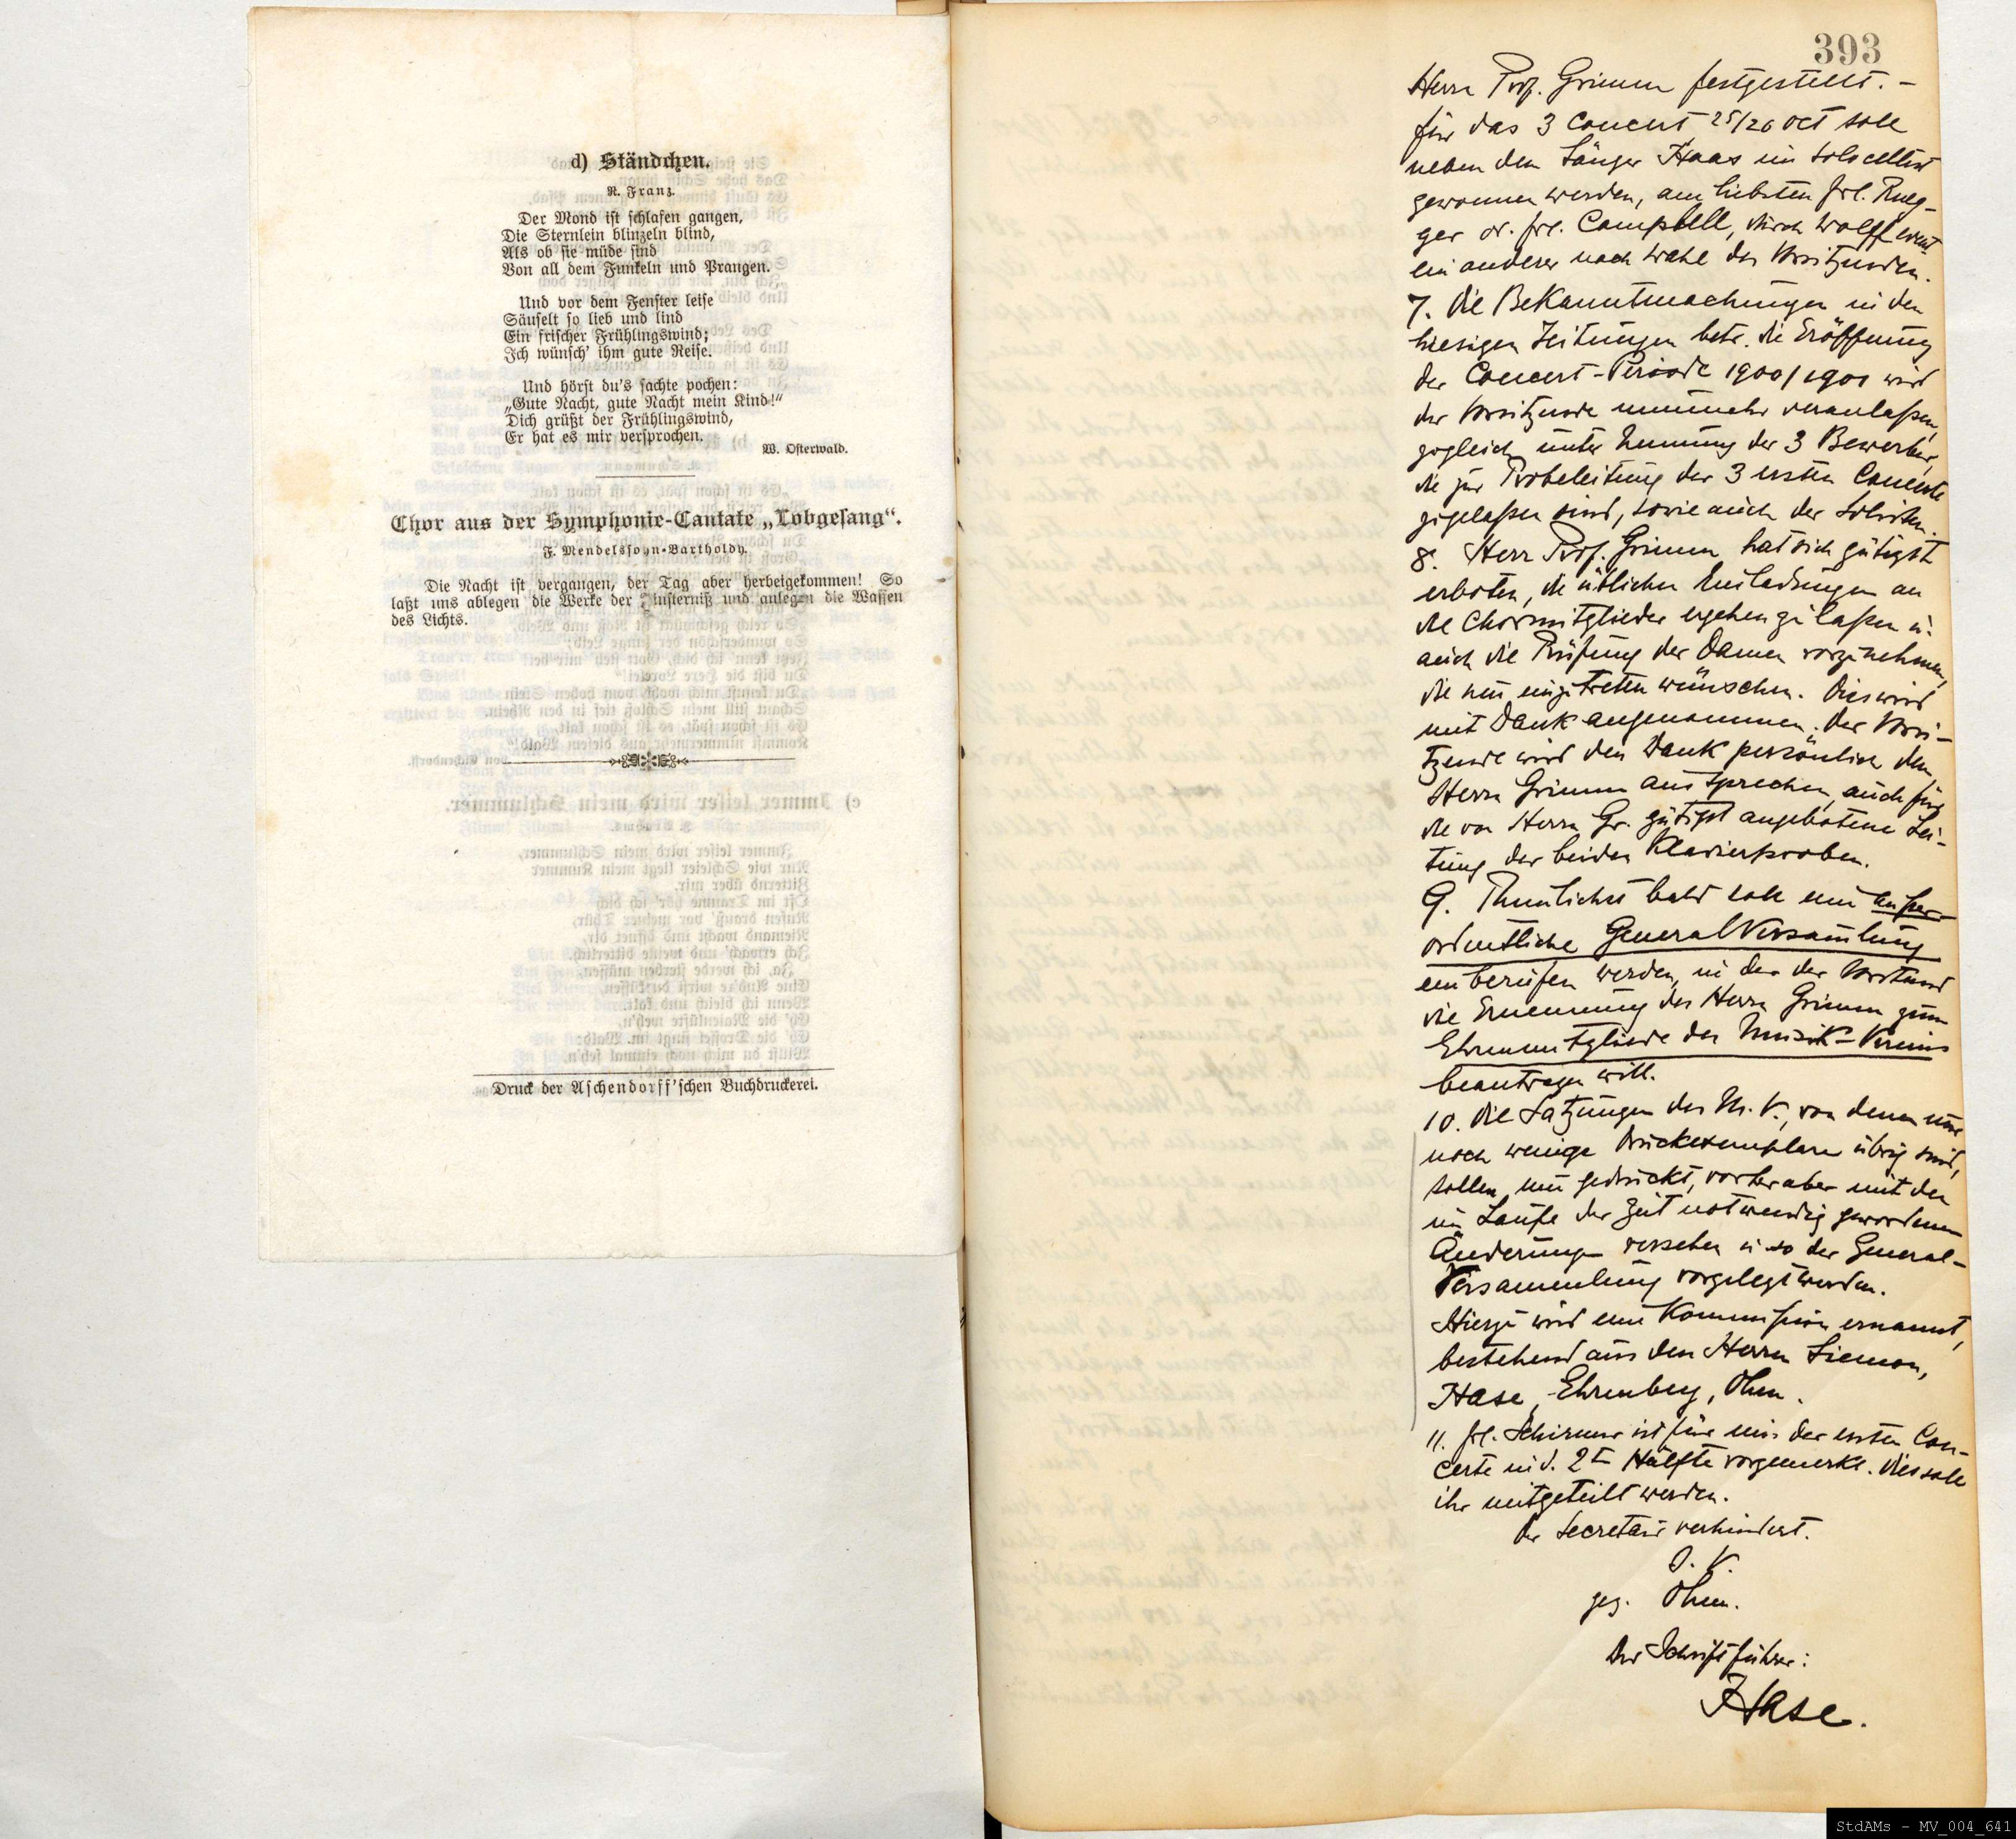 d) Ständchen.
R. Franz.
Der Mond ist schlafen gangen,
Die Sternlein blinzeln blind,
Als ob sie müde sind
Von all dem Funkeln und Prangen.
Und vor dem Fenster leise
Säuselt so lieb und lind
Ein frischer Frühlingswind;
Ich wünsch' ihm gute Reise.
Und hörst du's sachte pochen:
„Gute Nacht, gute Nacht mein Kind!“
Dich grüßt der Frühlingswind,
Er hat es mir versprochen.
W. Osterwald.
Chor aus der Symphonie-Cantate „Lobgesang“.
F. Mendelssohn-Bartholdy.
Die Nacht ist vergangen, der Tag aber herbeigekommen! So
laßt uns ablegen die Werke der Finsterniß und anlegen die Waffen
des Lichts.
Druck der Aschendorff'schen Buchdruckerei.
393
Herrn Prof. Grimm festgestellt. –
für das 3 Concert 25/26 Oct soll
neben dem Sänger Haas ein Solocellist
gewonnen werden, am liebsten Frl. Rueg-
ger od. Frl. Campbell, durch Wolff event
ein anderer nach Wahl des Vorsitzenden.
7. Die Bekanntmachungen in den
hiesigen Zeitungen betr. die Eröffnung
der Concert-Periode 1900/1901 wird
der Vorsitzende nunmehr veranlaßen,
zugleich unter Nennung der 3 Bewerber,
die zur Probeleitung der 3 ersten Concerte
zugelaßen sind, sowie auch der Solisten.
8. Herr Prof. Grimm hat sich gütigst
erboten, die üblichen Einladungen an
die Chormitglieder ergehen zu laßen u.
auch die Prüfung der Damen vorzunehmen,
die neu einzutreten wünschen. Dies wird
mit Dank angenommen. Der Vorsi-
tzende wird den Dank persönlich dem
Herrn Grimm aussprechen, auch für
die von Herrn Gr. gütigst angebotene Lei-
tung der beiden Klavierproben.
9. Thunlichst bald soll eine außer-
ordentliche GeneralVersamlung
einberufen werden, in der der Vorstand
die Ernennung des Herrn Grimm zum
Ehrenmitgliede des Musik-Vereins
beantragen will.
10. Die Satzungen des M. V., von denen nur
noch wenige Druckexemplare übrig sind,
sollen neu gedruckt, vorher aber mit den
im Laufe der Zeit notwendig gewordenen
Änderungen versehen u. so der General-
Versammlung vorgelegt werden.
Hierzu wird eine Kommission ernannt,
bestehend aus den Herrn Siemon,
Hase, Ehrenberg, Ohm.
11. Frl. Schirmer ist für eins der ersten Con-
certe in d. 2t Hälfte vorgemerkt. Dies soll
ihr mitgeteilt werden.
Der Secretair verhindert.
I. V.
gez. Ohm.
Der Schriftführer:
Hase.
StdAMs - MV_004_641